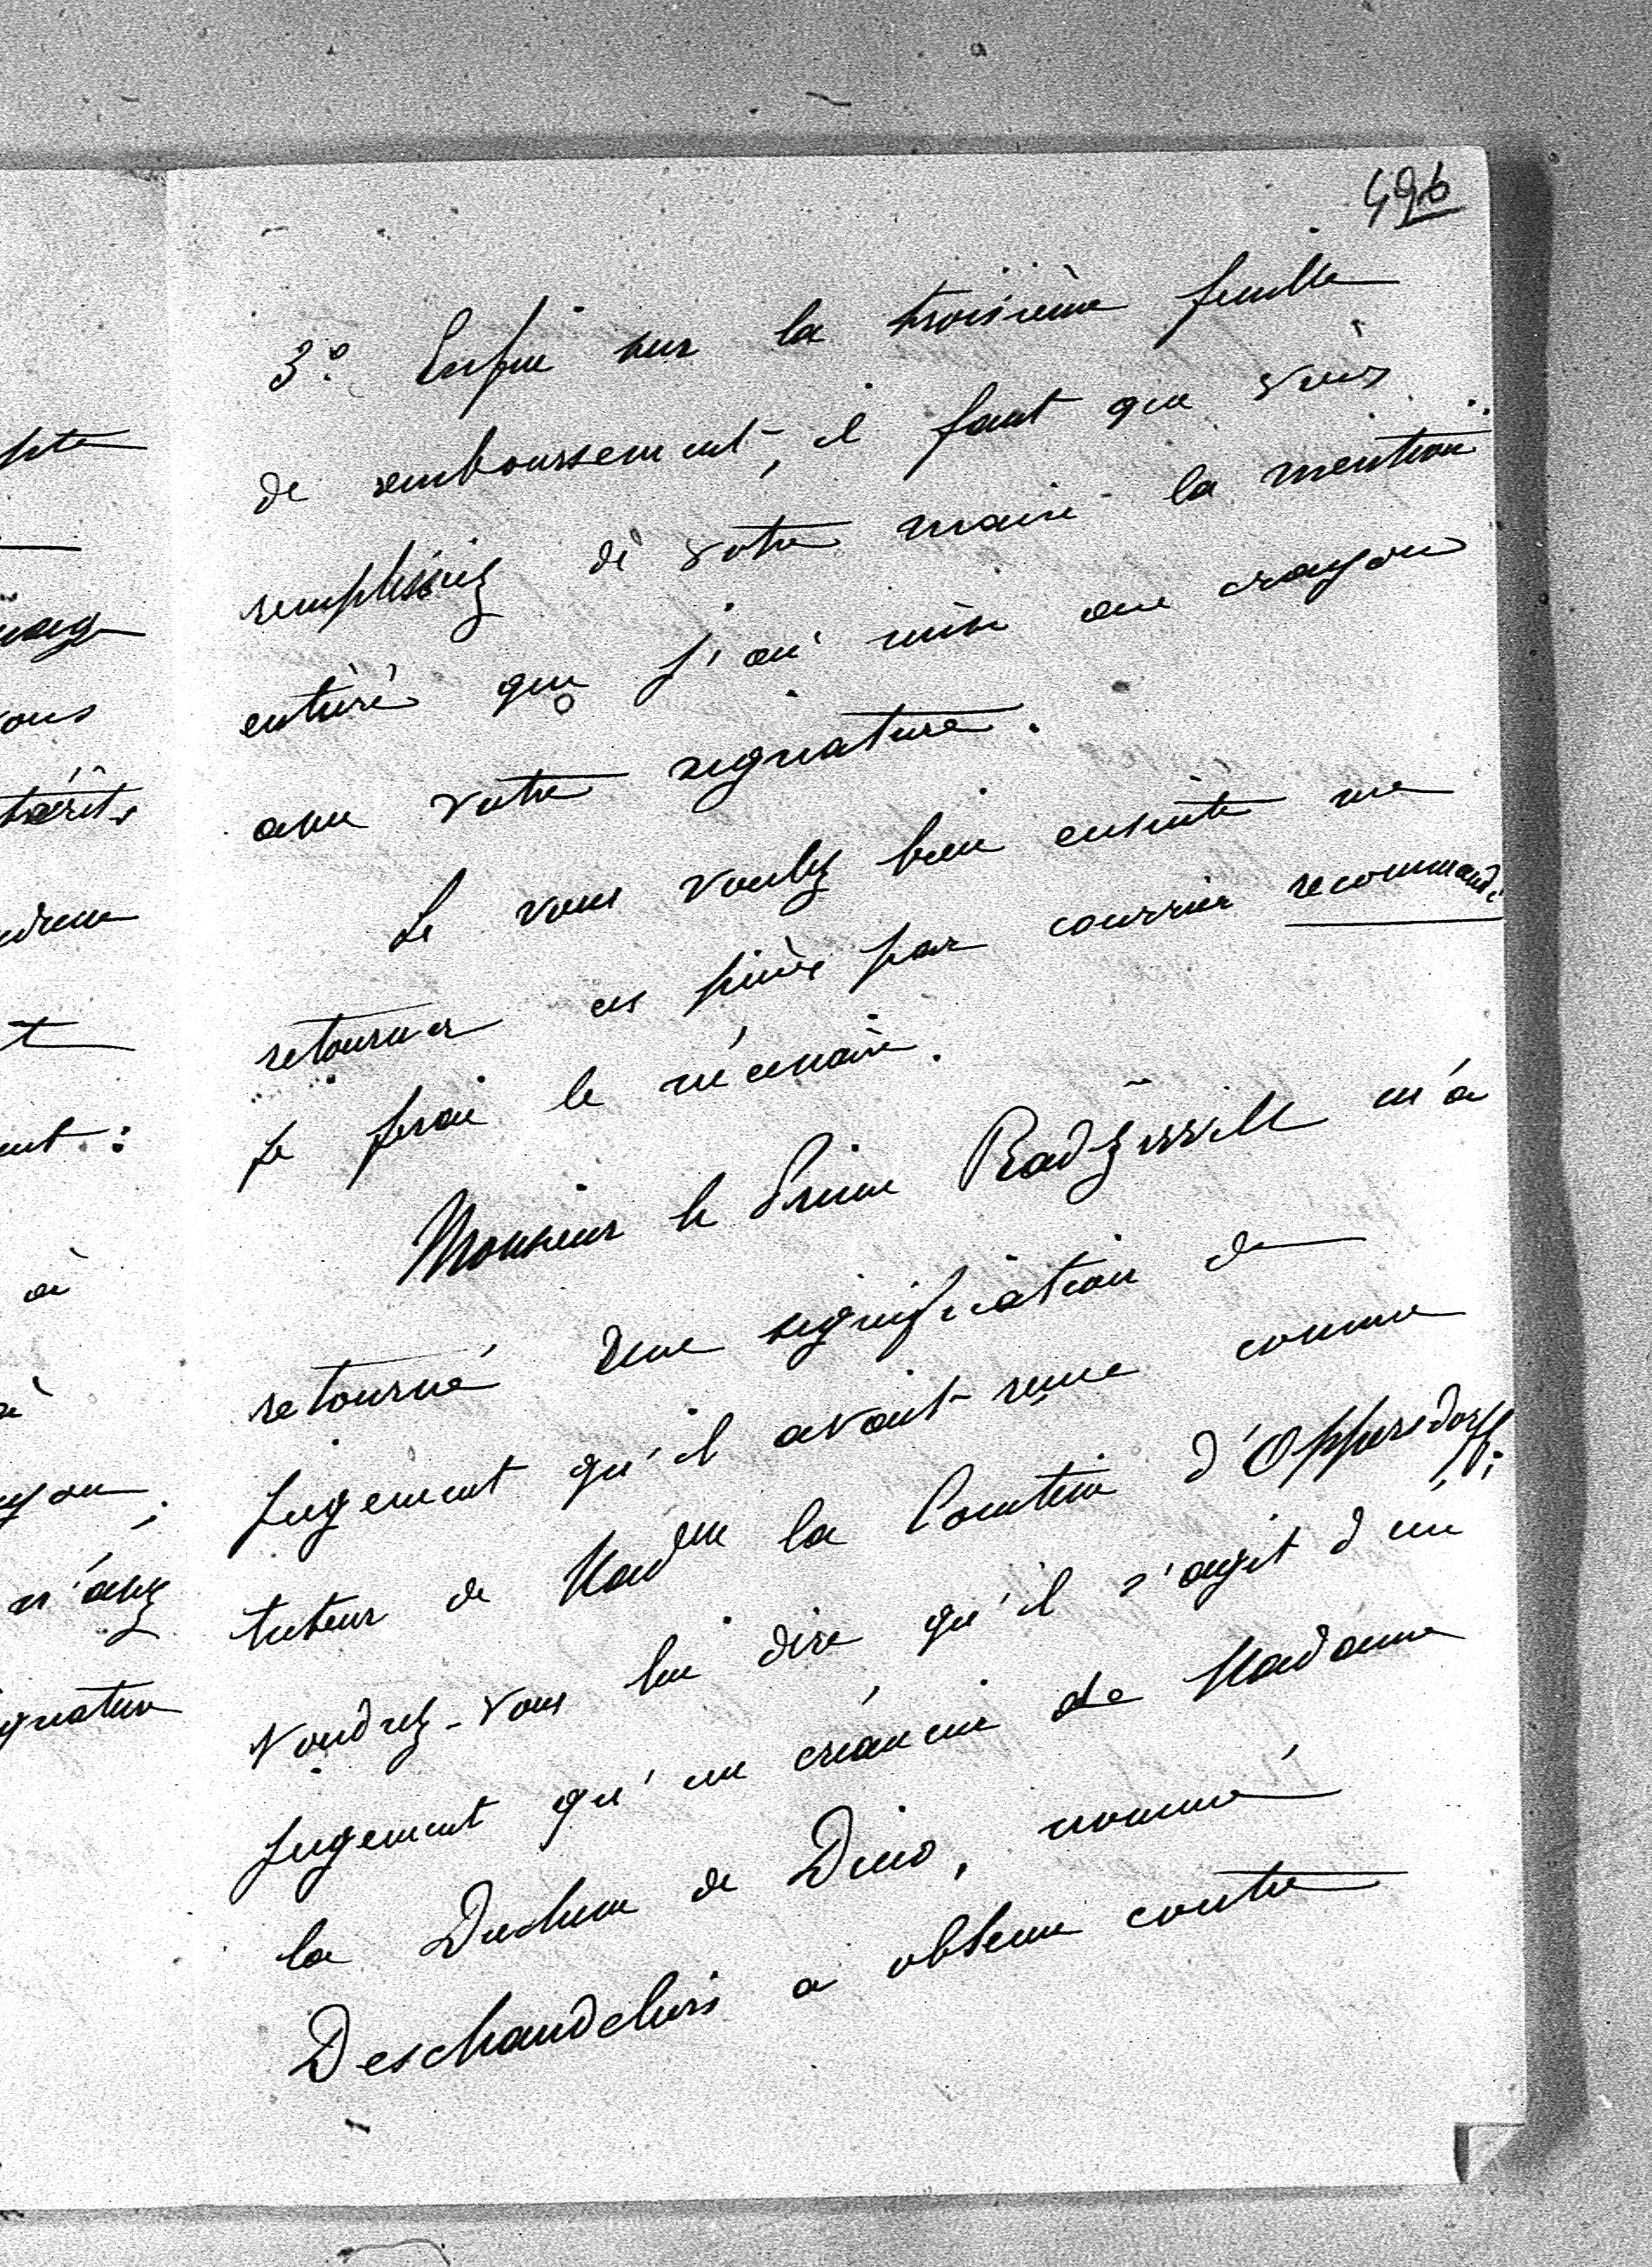 496
3º. Enfin sur la troisième feuille
de remboursement, il faut que vous
remplissiez de votre main la mention
entière que j'ai mise au crayon
avec votre signature.
Si vous voulez bien ensuite me
retourner ces pièces par courrier recommandé
je ferai le nécessaire.
Monsieur le Prince Radziwill m'a
retourné une signification de
jugement qu'il avait reçue comme
tuteur de Madme la Comtesse d'Oppersdorff;
Voudrez-vous lui dire qu'il s'agit d'un
jugement qu'un créancier de Madame
la Duchesse de Dino, nommé
Deschandeliers a obtenu contre
pte
vous
ent :
à
à
yon;
n'avez
gnature